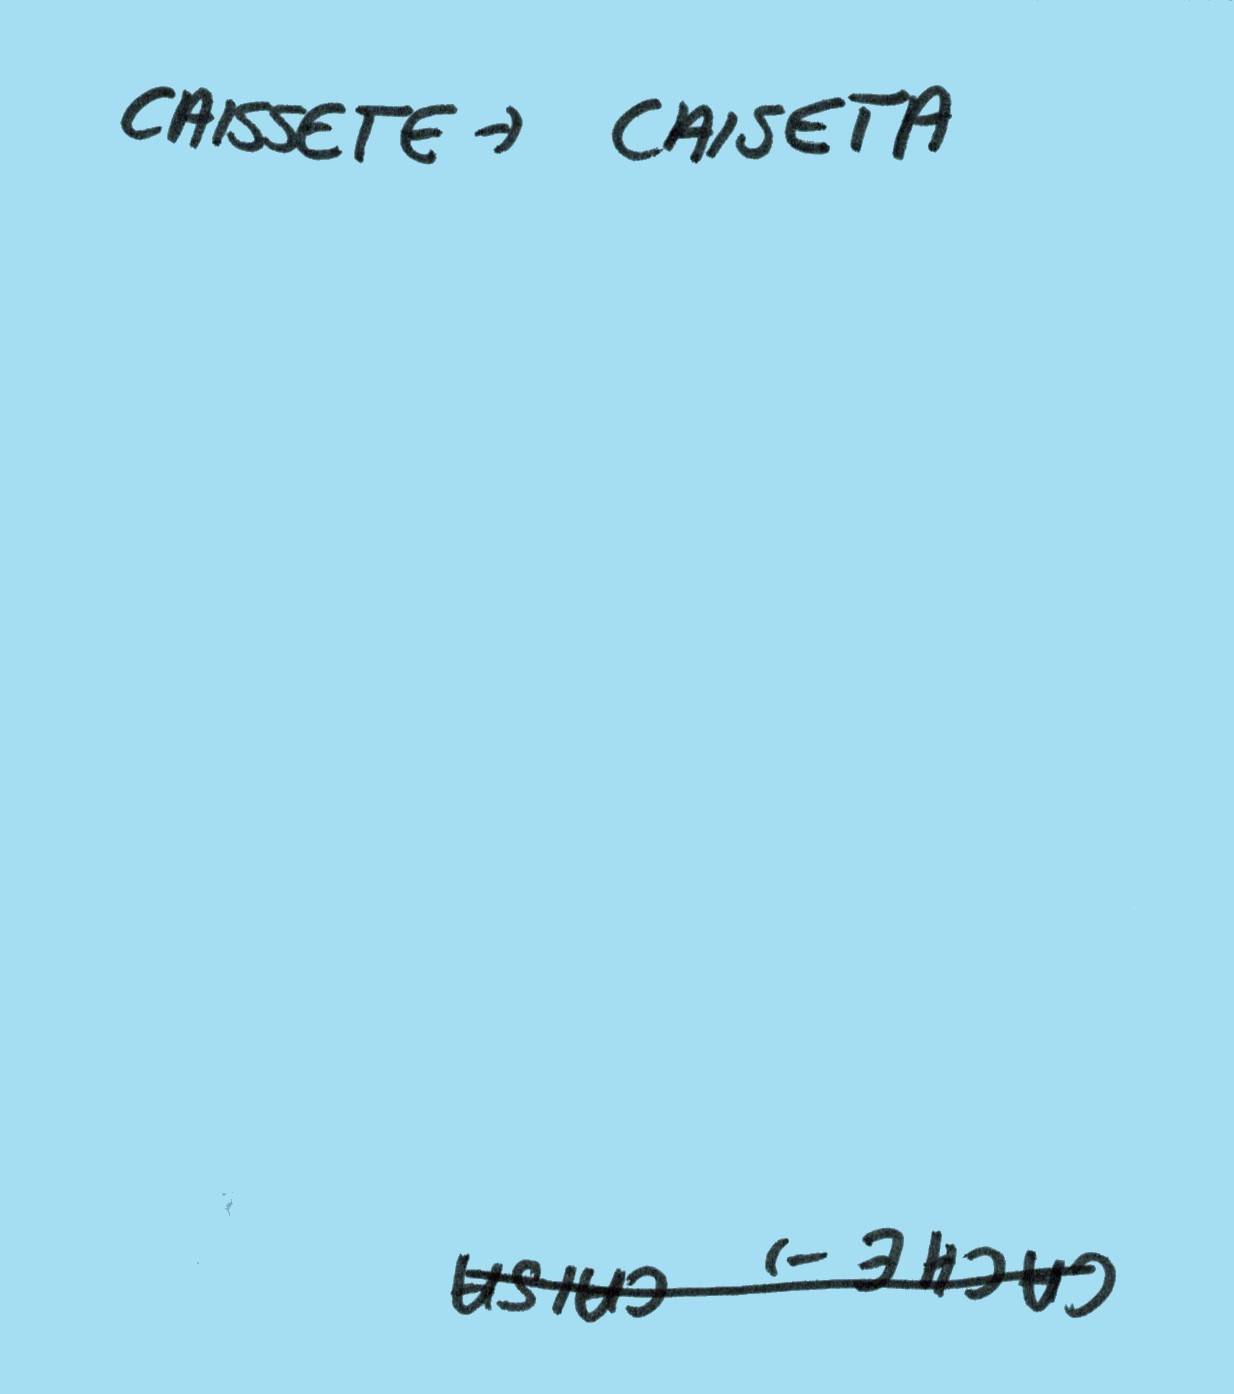 CAISSETE → CAISETA
CACHE → CAISA